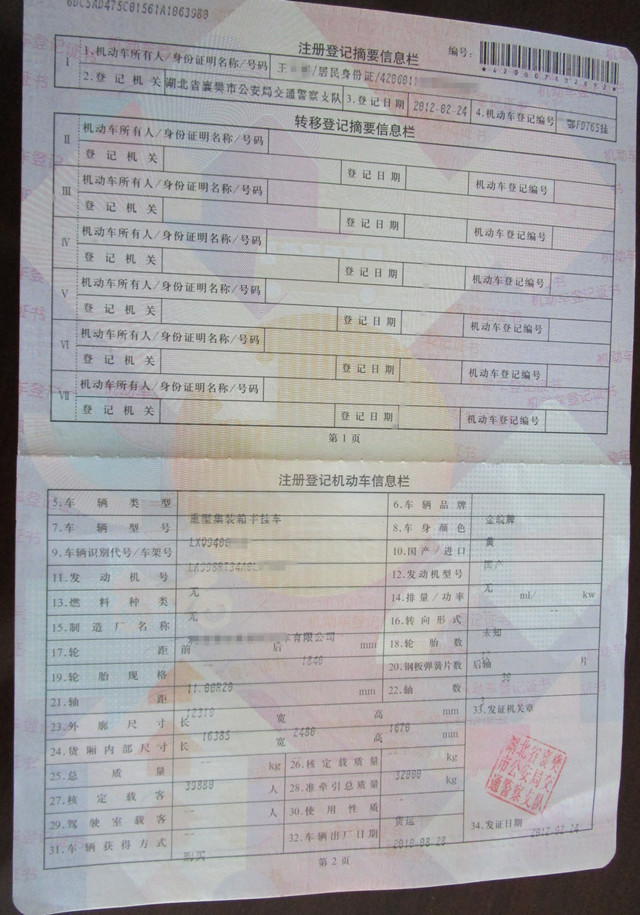 6DC5AD475C01561A1863980
注册登记摘要信息栏
编号:
Ⅰ 1.机动车所有人/身份证明名称/号码 王 /居民身份证/420601
2.登记机关 湖北省襄樊市公安局交通警察支队 3.登记日期 2012-02-24 4.机动车登记编号 鄂FD765挂
转移登记摘要信息栏
Ⅱ 机动车所有人/身份证明名称/号码
登记机关 登记日期 机动车登记编号
Ⅲ 机动车所有人/身份证明名称/号码
登记机关 登记日期 机动车登记编号
Ⅳ 机动车所有人/身份证明名称/号码
登记机关 登记日期 机动车登记编号
Ⅴ 机动车所有人/身份证明名称/号码
登记机关 登记日期 机动车登记编号
Ⅵ 机动车所有人/身份证明名称/号码
登记机关 登记日期 机动车登记编号
Ⅶ 机动车所有人/身份证明名称/号码
登记机关 登记日期 机动车登记编号
第1页
注册登记机动车信息栏
5.车辆类型 重型集装箱半挂车 6.车辆品牌 金皖牌
7.车辆型号 LX9940 8.车身颜色 黄
9.车辆识别代号/车架号 10.国产/进口 国产
11.发动机号 无 12.发动机型号 无
13.燃料种类 无 14.排量/功率 -- ml/ kw
15.制造厂名称 车有限公司 16.转向形式 未知
17.轮距 前 后 1840 mm 18.轮胎数
19.轮胎规格 11.00R20 20.钢板弹簧片数 后轴 片
21.轴距 mm 22.轴数
23.外廓尺寸 长 16385 宽 2480 高 1670 mm 33.发证机关章
24.货厢内部尺寸 长 宽 高 mm
25.总质量 39880 kg 26.核定载质量 32000 kg
27.核定载客 -- 人 28.准牵引总质量 -- kg
29.驾驶室载客 -- 人 30.使用性质 货运
31.车辆获得方式 购买 32.车辆出厂日期 2010-08-28 34.发证日期 2012-02-24
湖北省襄樊市公安局交通警察支队
第2页